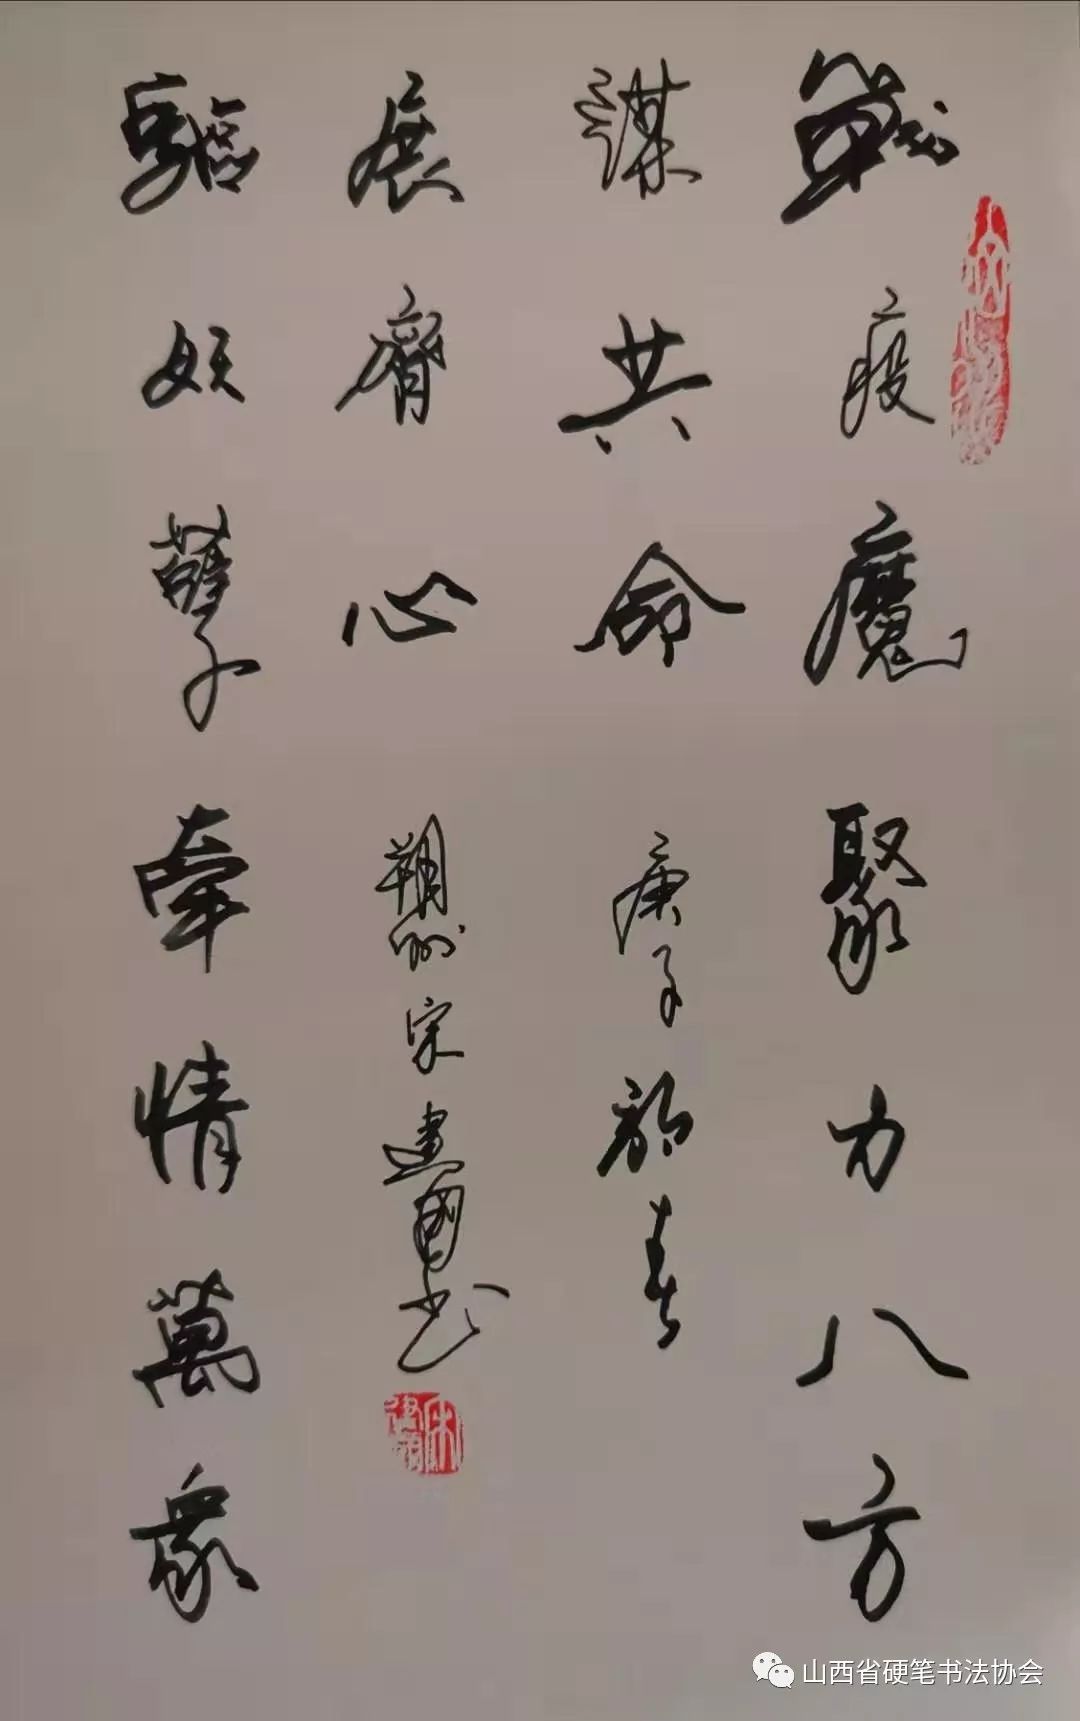 戰疫魔聚力八方
謀共命
驅妖孽牽情萬衆
展齊心
庚子韶春
朔州宋建國書
山西省硬笔书法协会